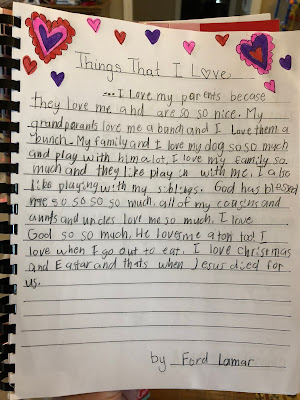 Things That I L♡ve
...I love my parents becase
they love me and are so so nice. My
grandparents love me a bunch and I love them a
bunch. My family and I love my dog so so much
and play with him a lot, I love my family so
much and they like play in with me. I also
like playing with my siblings. God has blessed
me so so so so much, all of my cousins and
aunts and uncles love me so much. I love
God so so much. He loves me a ton too! I
love when I go out to eat. I love christmas
and Eastar and thats when Jesus died for
us.
by Ford Lamar